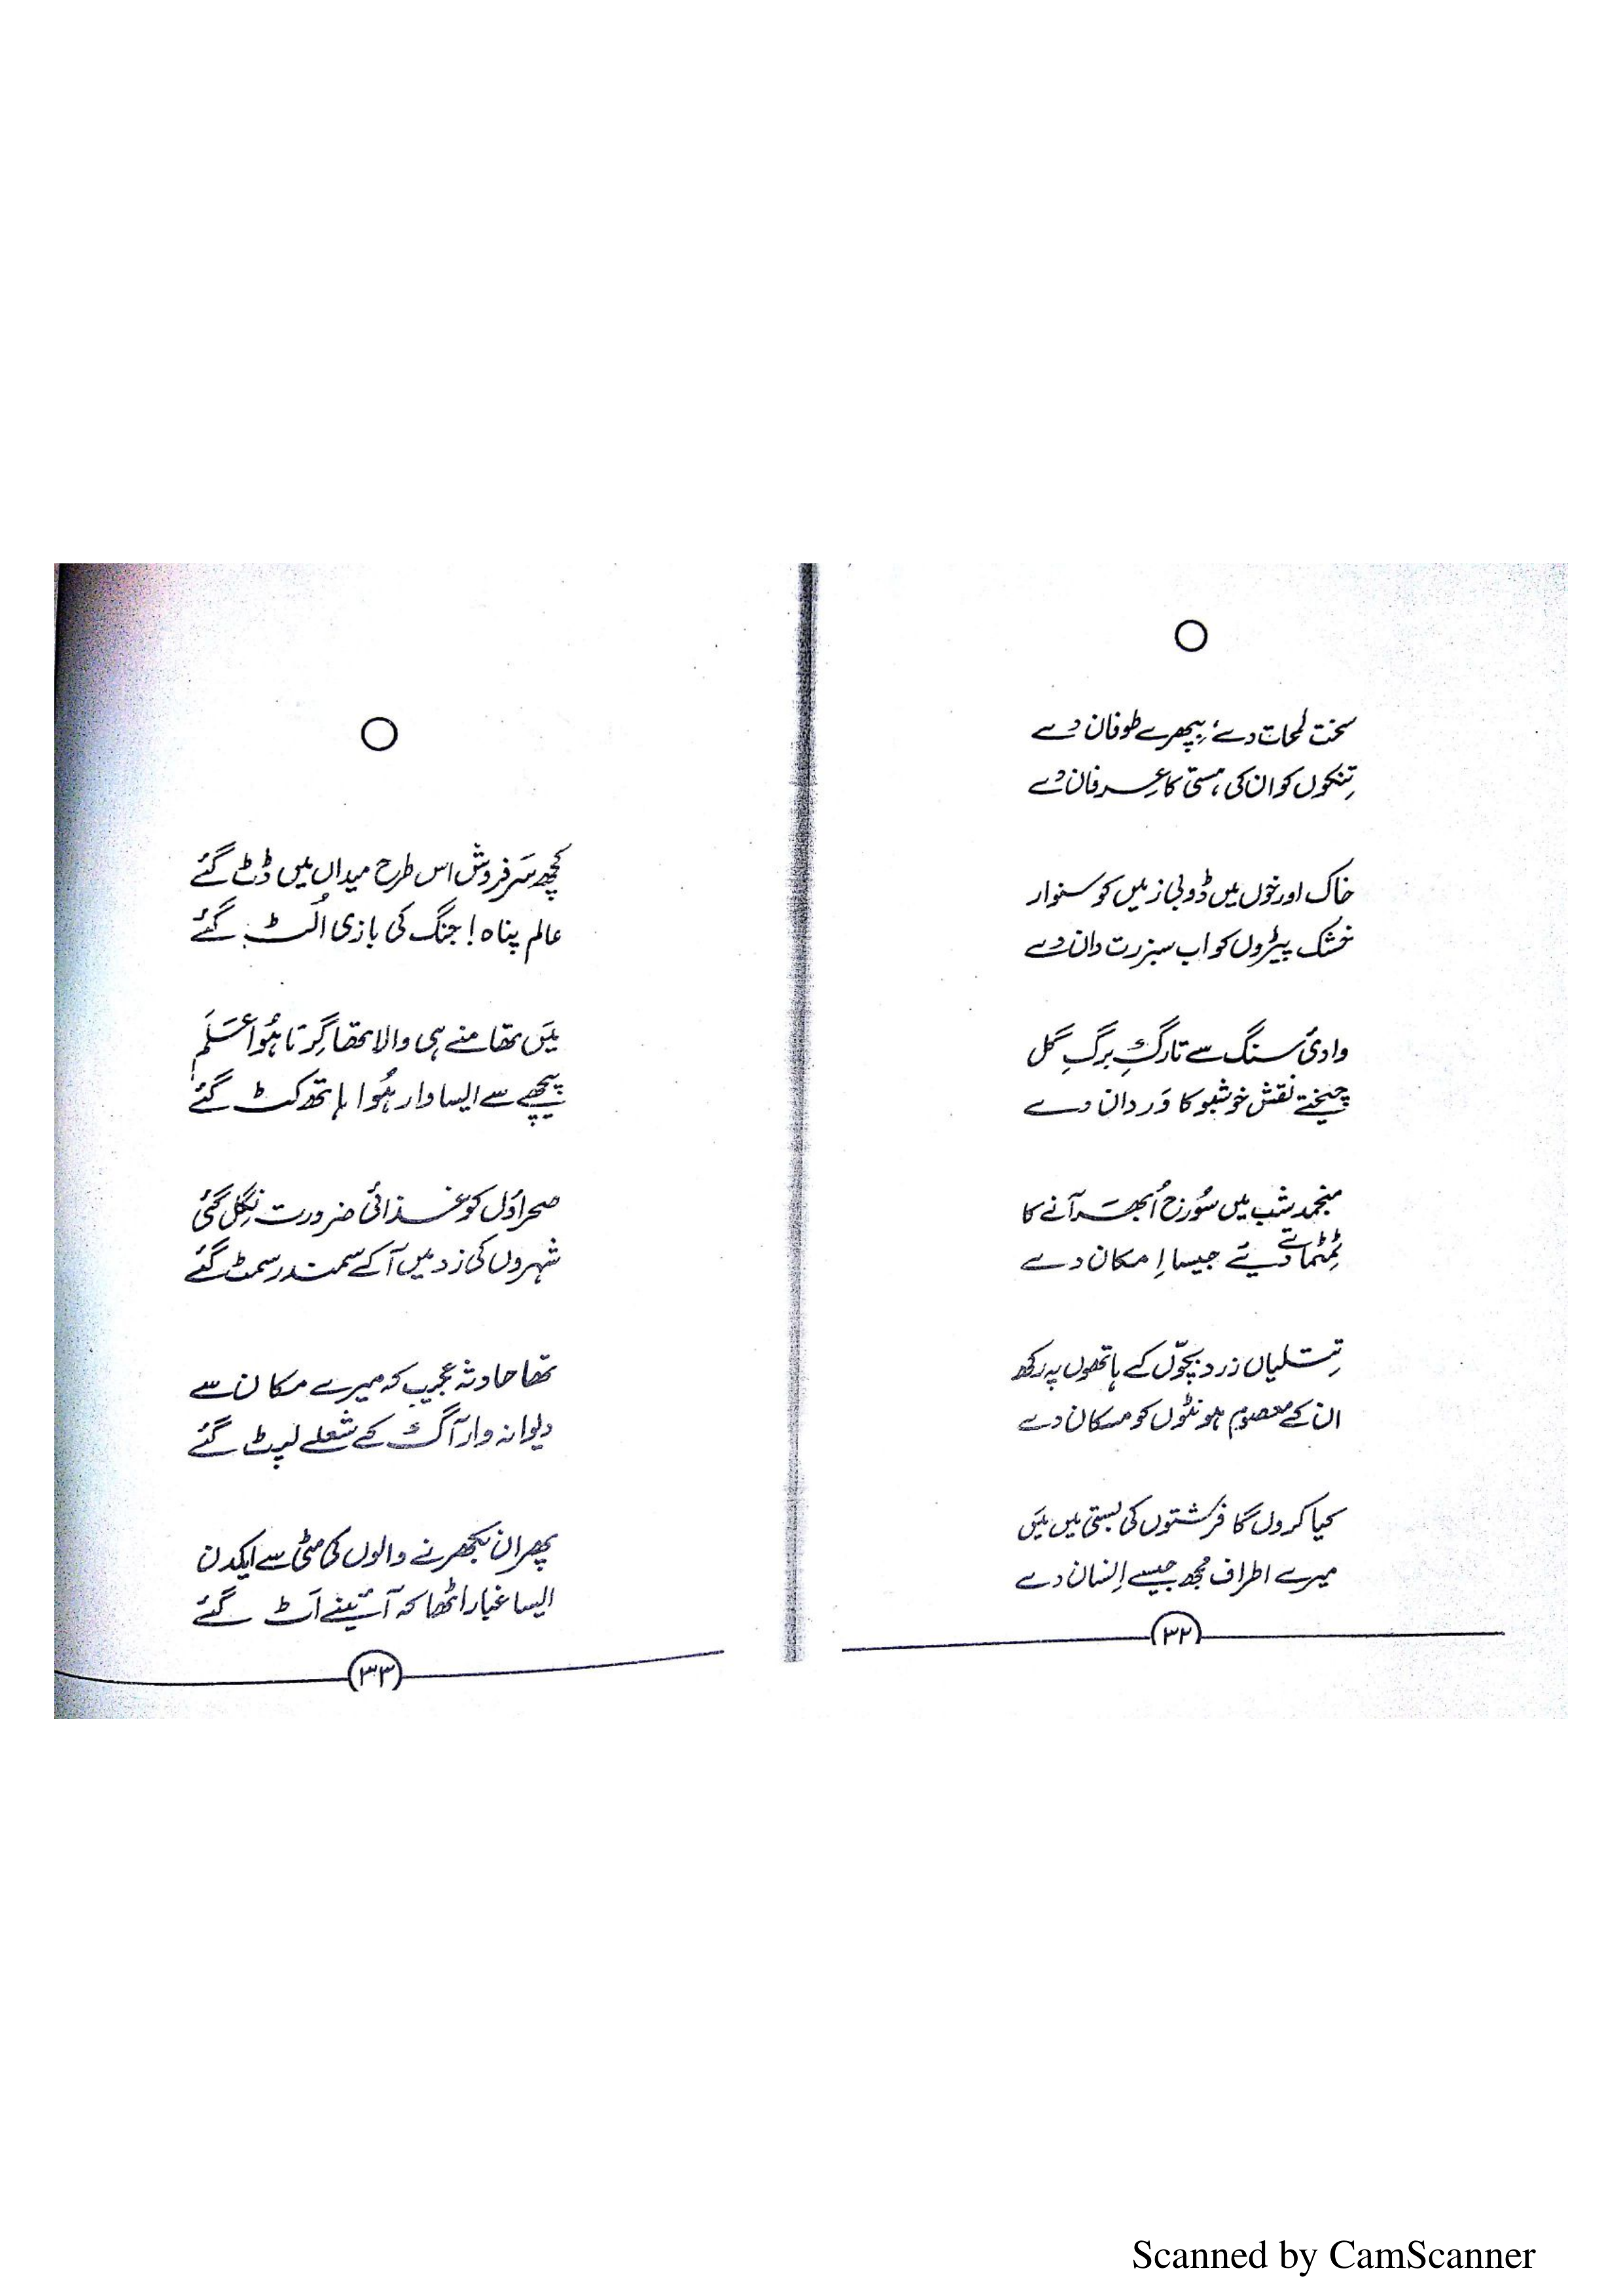 سخت لمحات دے، بپھرے طوفان دے
تِنکوں کو ان کی ہستی کا عِرفان دے
خاک اور خوں میں ڈوبی زمیں کو سنوار
خشک پیڑوں کو اب سبز رت دان دے
وادیٔ سنگ سے تا رگِ برگِ گل
چیختے نقش خوشبو کا وَردان دے
منجمد شب میں سُورج اُبھر آنے کا
ٹِمٹماتے دیئے جیسا اِمکان دے
تِتلیاں زرد بچّوں کے ہاتھوں پہ رکھ
ان کے معصوم ہونٹوں کو مسکان دے
کیا کروں گا فرشتوں کی بستی میں مَیں
میرے اطراف مجھ جیسے اِنسان دے
۳۲
کچھ سَرفروش اس طرح میداں میں ڈٹ گئے
عالم پناہ! جنگ کی بازی اُلٹ گئے
مَیں تھامنے ہی والا تھا گِرتا ہُوا عَلَم
پیچھے سے ایسا وار ہُوا ہاتھ کٹ گئے
صحراؤں کو غذائی ضرورت نِگل گئی
شہروں کی زد میں آ کے سمندر سمٹ گئے
تھا حادثہ عجیب کہ میرے مکان سے
دیوانہ وار آگ کے شعلے لپٹ گئے
پھر ان بکھرنے والوں کی مٹی سے ایکدن
ایسا غبار اٹھا کہ آئینے اَٹ گئے
۳۳
Scanned by CamScanner